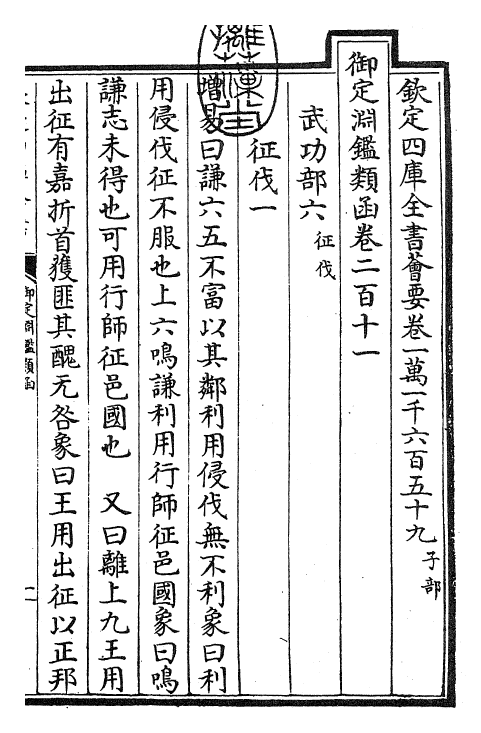 欽定四庫全書薈要卷一萬一千六百五十九子部
御定淵鑑類函卷二百十一
武功部六征伐
征伐一
增易曰謙六五不富以其鄰利用侵伐無不利象曰利
用侵伐征不服也上六鳴謙利用行師征邑國象曰鳴
謙志未得也可用行師征邑國也 又曰離上九王用
出征有嘉折首獲匪其醜无咎象曰王用出征以正邦
御定淵鑑類函